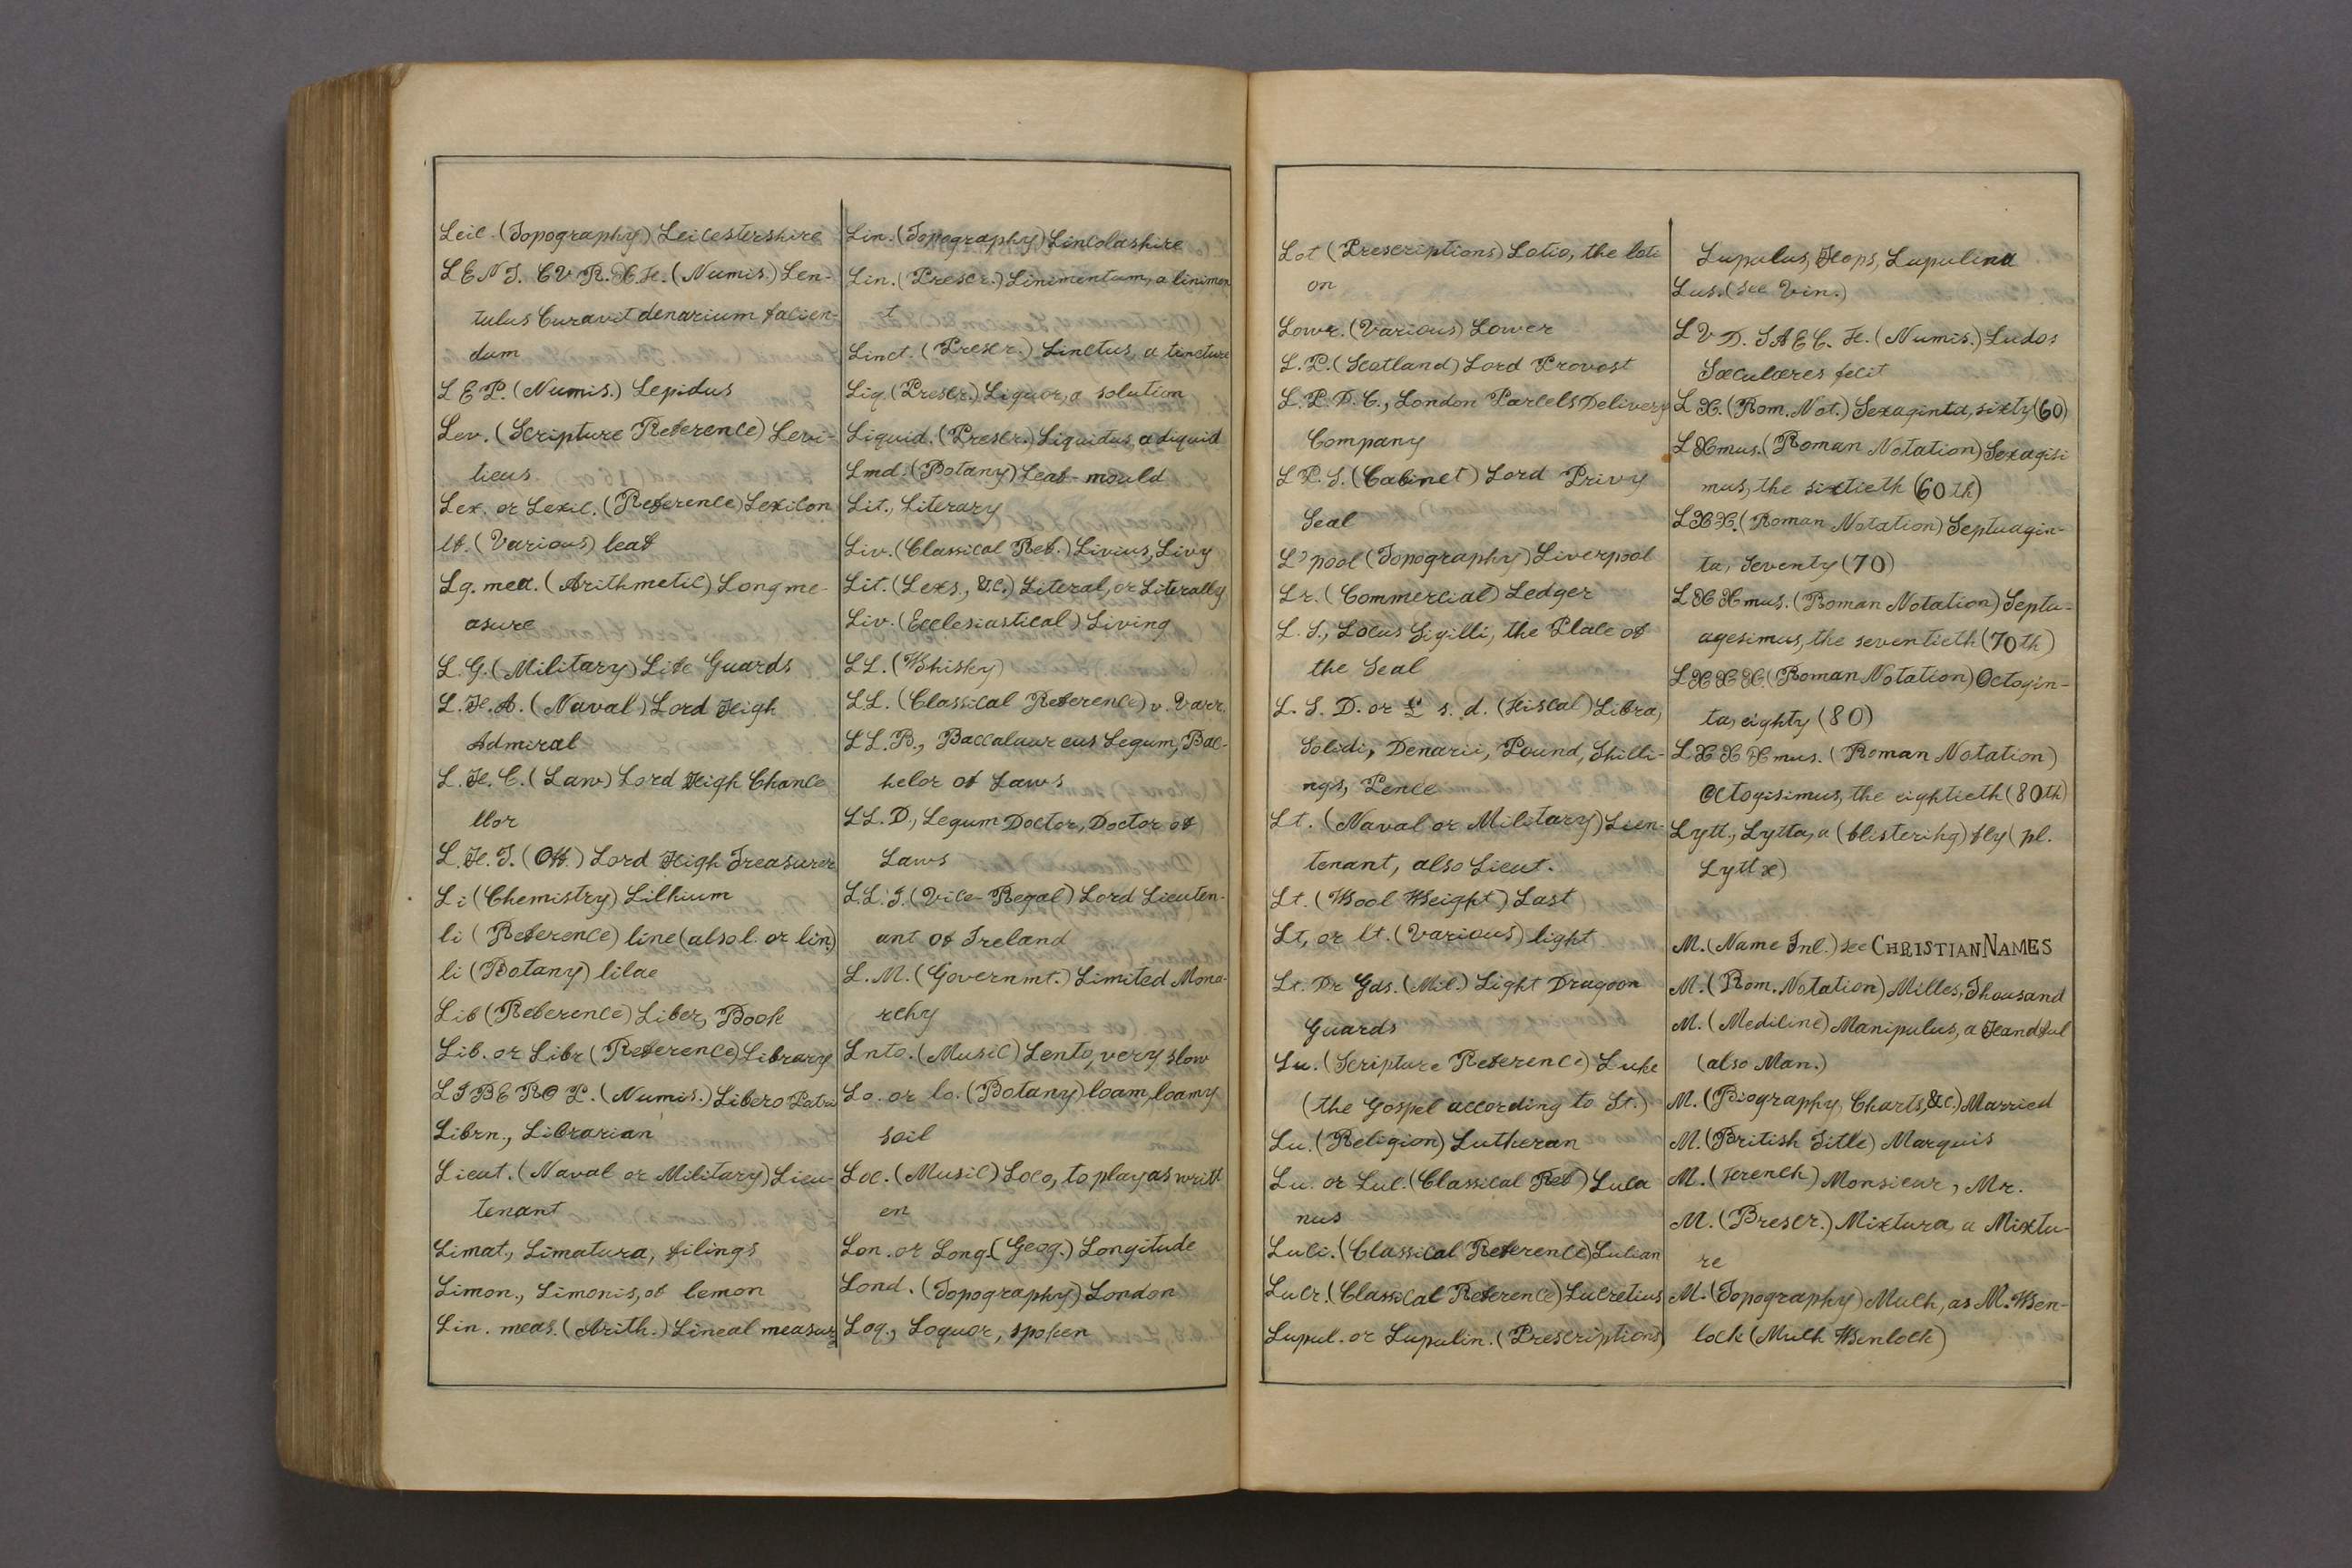 Leic. (Topography) Leicestershire
L E N T. C V R. X. F. (Numis.) Len-
tulus Curavit denarium facien-
dum
L E P. (Numis.) Lepidus
Lev. (Scripture Reference) Levi-
ticus
Lex. or Lexic. (Reference) Lexicon
lf. (Various) leaf
Lg. mea. (Arithmetic) Long me-
asure
L. G. (Military) Life Guards
L. H. A. (Naval) Lord High
Admiral
L. H. C. (Law) Lord High Chance
llor
L. H. T. (Off.) Lord High Treasurer
Li (Chemistry) Lithium
li (Reference) line (also l. or lin.)
li (Botany) lilac
Lib (Reference) Liber, Book
Lib. or Libr (Reference) Library
L I B E R O P. (Numis.) Libero Patri
Librn., Librarian
Lieut. (Naval or Military) Lieu-
tenant
Limat., Limatura, filings
Limon., Limonis, of lemon
Lin. meas. (Arith.) Lineal measure
Lin. (Topography) Lincolnshire
Lin. (Prescr.) Linimentum, a linimen
t
Linct. (Prescr.) Linctus, a tincture
Liq (Prescr.) Liquor, a solution
Liquid. (Prescr.) Liquidus, a liquid
Lmd. (Botany) Leaf-mould
Lit., Literary
Liv. (Classical Ref.) Livius, Livy
Lit. (Lexs., &c.) Literal, or Literally
Liv. (Ecclesiastical) Living
LL. (Whisky)
LL. (Classical Reference) v. Varr.
LL. B., Baccalaureus Legum, Bac-
helor of Laws
LL. D., Legum Doctor, Doctor of
Laws
L. L. I. (Vice-Regal) Lord Lieuten-
ant of Ireland
L. M. (Governmt.) Limited Mona-
rchy
Lnto. (Music) Lento, very slow
Lo. or lo. (Botany) loam, loamy
soil
Loc. (Music) Loco, to play as writt
en
Lon. or Long. (Geog.) Longitude
Lond. (Topography) London
Loq., Loquor, spoken
Lot (Prescriptions) Lotio, the loti
on
Lowr. (Various) Lower
L. P. (Scotland) Lord Provost
L. P. D. C., London Parcels Delivery
Company
L P. S. (Cabinet) Lord Privy
Seal
L'pool (Topography) Liverpool
Lr. (Commercial) Ledger
L. S., Locus Sigilli, the Place of
the Seal
L. S. D. or £ s. d. (Fiscal) Libra,
Solidi, Denarii, Pound, Shilli-
ngs, Pence
Lt. (Naval or Military) Lieu-
tenant, also Lieut.
Lt. (Wool Weight) Last
Lt, or lt. (Various) light
Lt. Dr Gds. (Mil.) Light Dragoon
Guards
Lu. (Scripture Reference) Luke
(the Gospel according to St.)
Lu. (Religion) Lutheran
Lu. or Luc. (Classical Ref) Luca
nus
Luci. (Classical Reference) Lucian
Lucr. (Classical Reference) Lucretius
Lupul. or Lupulin. (Prescriptions)
Lupulus, Hops, Lupulina
Lus. (see Vin.)
L V D. S A E C. F. (Numis.) Ludos
Sæculares fecit
L X. (Rom. Not.) Sexaginta, sixty (60)
L Xmus. (Roman Notation) Sexagisi
mus, the sixtieth (60th)
L X X. (Roman Notation) Septuagin-
ta, Seventy (70)
L X X mus. (Roman Notation) Septu-
agesimus, the seventieth (70th)
L X X X. (Roman Notation) Octogin-
ta, eighty (80)
L. X X X mus. (Roman Notation)
Octogisimus, the eightieth (80th)
Lytt., Lytta, a (blistering) fly (pl.
Lyttæ)
M. (Name Inl.) see CHRISTIAN NAMES
M. (Rom. Notation) Milles, Thousand
M. (Medicine) Manipulus, a Handful
(also Man.)
M. (Biography, Charts, &c.) Married
M. (British Title) Marquis
M. (French) Monsieur, Mr.
M. (Prescr.) Mixtura, a Mixtu-
re
M. (Topography) Much, as M. Wen-
lock (Much Wenlock)